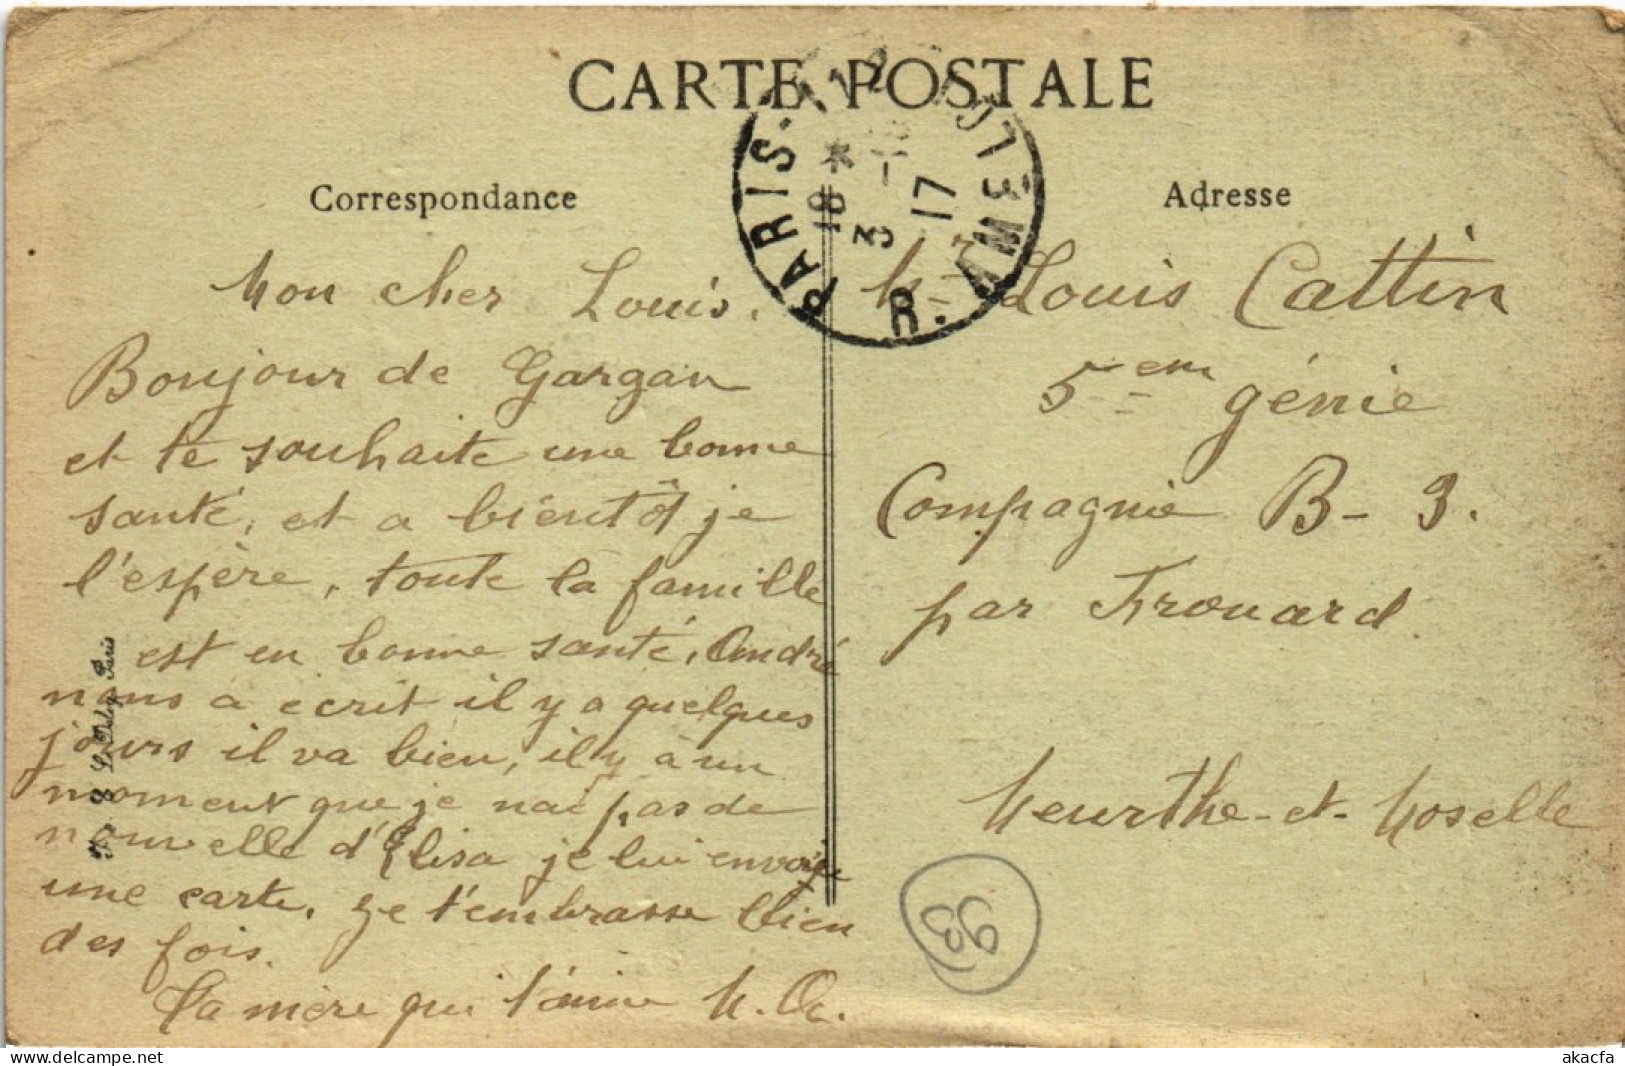 CARTE POSTALE
Correspondance
Mon cher Louis.
Bonjour de Gargan
et te souhaite une bonne
santé, et a bientôt je
l'espère, toute la famille
est en bonne santé, André
nous a ecrit il y a quelques
jours il va bien, il y a un
moment que je nai pas de
nouvelle d'Elisa je lui envoye
une carte. Je t'embrasse bien
des fois.
Ta mère qui t'aime
Paris
PARIS.
R. AMELOT
18 *
3 -
17
Adresse
Mr Louis Cattin
5em génie
Compagnie B - 3.
par Frouard.
Meurthe-et-Moselle
93
www.delcampe.net
akacfa